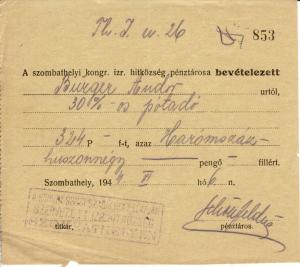 Th. I. u. 26
853
A szombathelyi kongr. izr. hitközség pénztárosa bevételezett
Burger Andor úrtól,
30%-os pótadó
324 P – f-t, azaz Háromszáz
huszonnégy — pengő – fillért.
Szombathely, 194 4 II hó 6 n.
titkár. pénztáros.